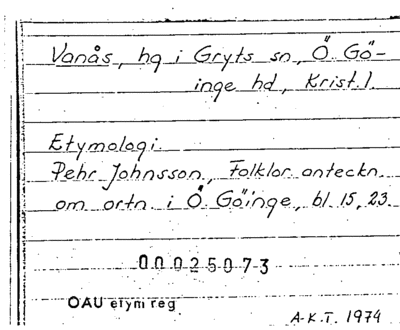 Vanås, hg i Gryts sn, Ö. Gö-
inge hd, Krist. l.
Etymologi
Pehr Johnsson, Folklor. anteckn.
om ortn. i Ö. Göinge, bl. 15, 23.
00025073
OAU etym reg
A.K.T. 1974